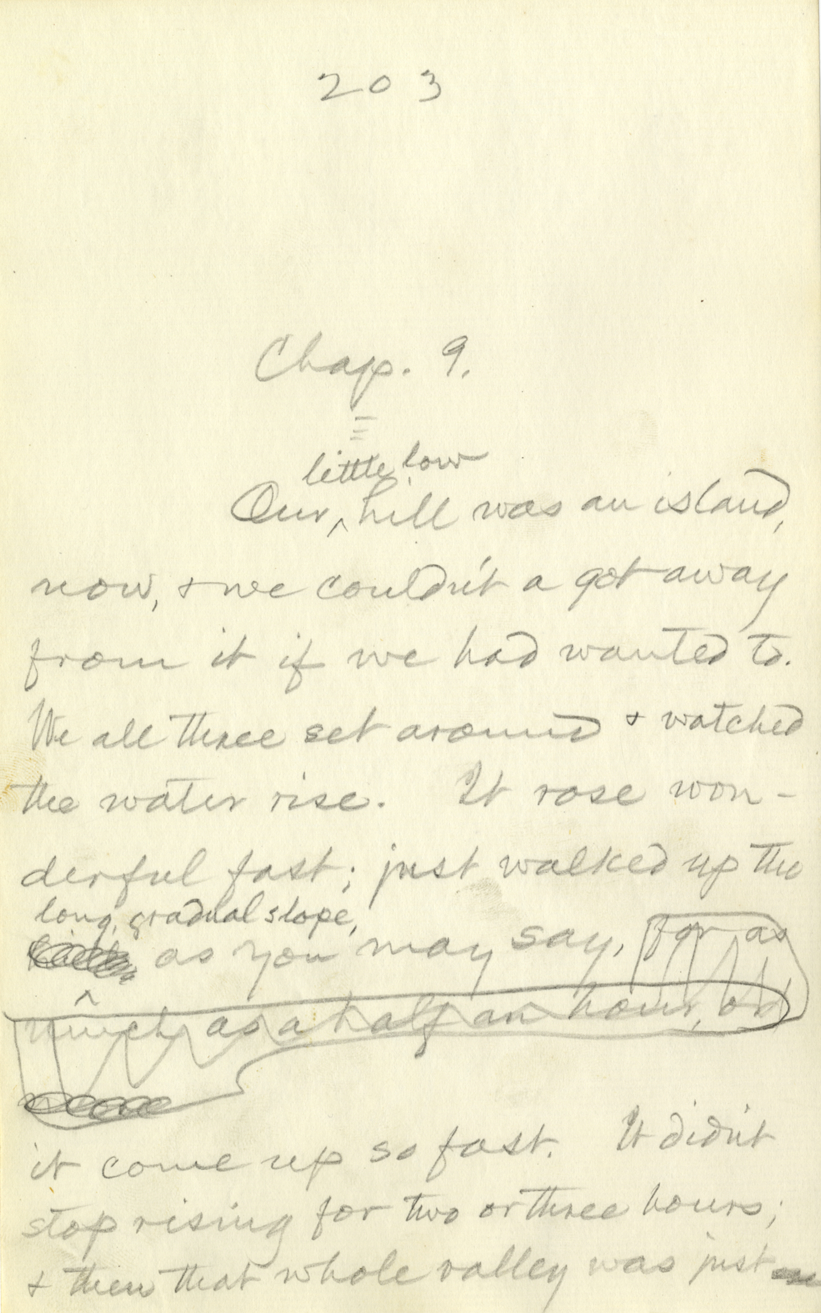 203
Chap. 9.
little low
Our, ^ hill was an island,
now, & we couldn't a got away
from it if we had wanted to.
We all three set around & watched
the water rise. It rose won-
derful fast; just walked up the
long, gradual slope,
as you may say, for as
much as a half an hour, or
it come up so fast. It didn't
stop rising for two or three hours;
& then that whole valley was just